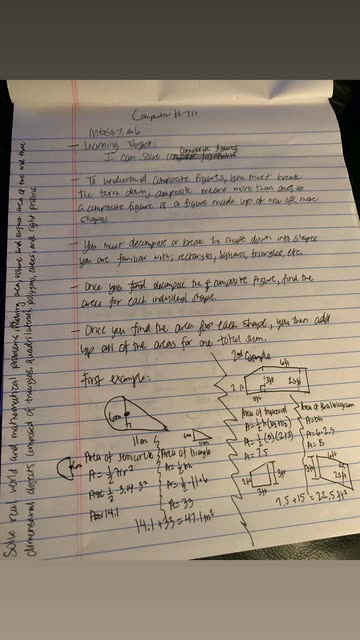 Computer # 711
MGSE7.G.6
- Learning Target:
I can solve composite figures
- To understand composite figures, you must break
the term down, composite means more than one, so
a composite figure is a figure made up of one or more
shapes
- You must decompose or break the shape down into shapes
you are familiar with; rectangles, squares, triangles, etc.
- Once you decompose the composite figure, find the
area for each individual shape.
- Once you find the area for each shape, you then add
up all of the areas for one total sum.
First example:
6m
11m
6m
11m
Area of semicircle
A = 1/2 πr²
A = 1/2 · 3.14 · 3²
A = 14.1
Area of triangle
A = 1/2 bh
A = 1/2 · 11 · 6
A = 33
14.1 + 33 = 47.1m²
2nd Example
6ft
3ft
2.5ft
3ft
Area of trapezoid
A = 1/2 h (b1+b2)
A = 1/2 (3)(2+3)
A = 7.5
2ft
3ft
3ft
Area of Parallelogram
A = bh
A = 6 · 2.5
A = 15
6ft
2.5ft
7.5 + 15 = 22.5ft²
Solve real world and mathematical problems involving area, volume and surface area of two and three
dimensional objects composed of triangles, quadrilaterals, polygons, cubes, and right prisms.